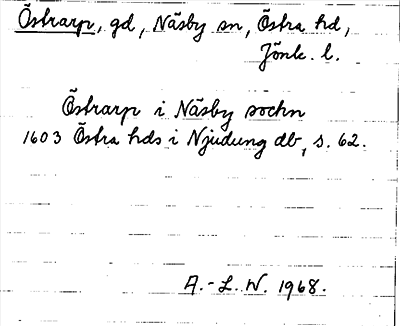 Östrarp, gd, Näsby sn, Östra hd,
Jönk. l.
Östrarp i Näsby sockn
1603 Östra hds i Njudung db, s. 62.
A.-L. W. 1968.